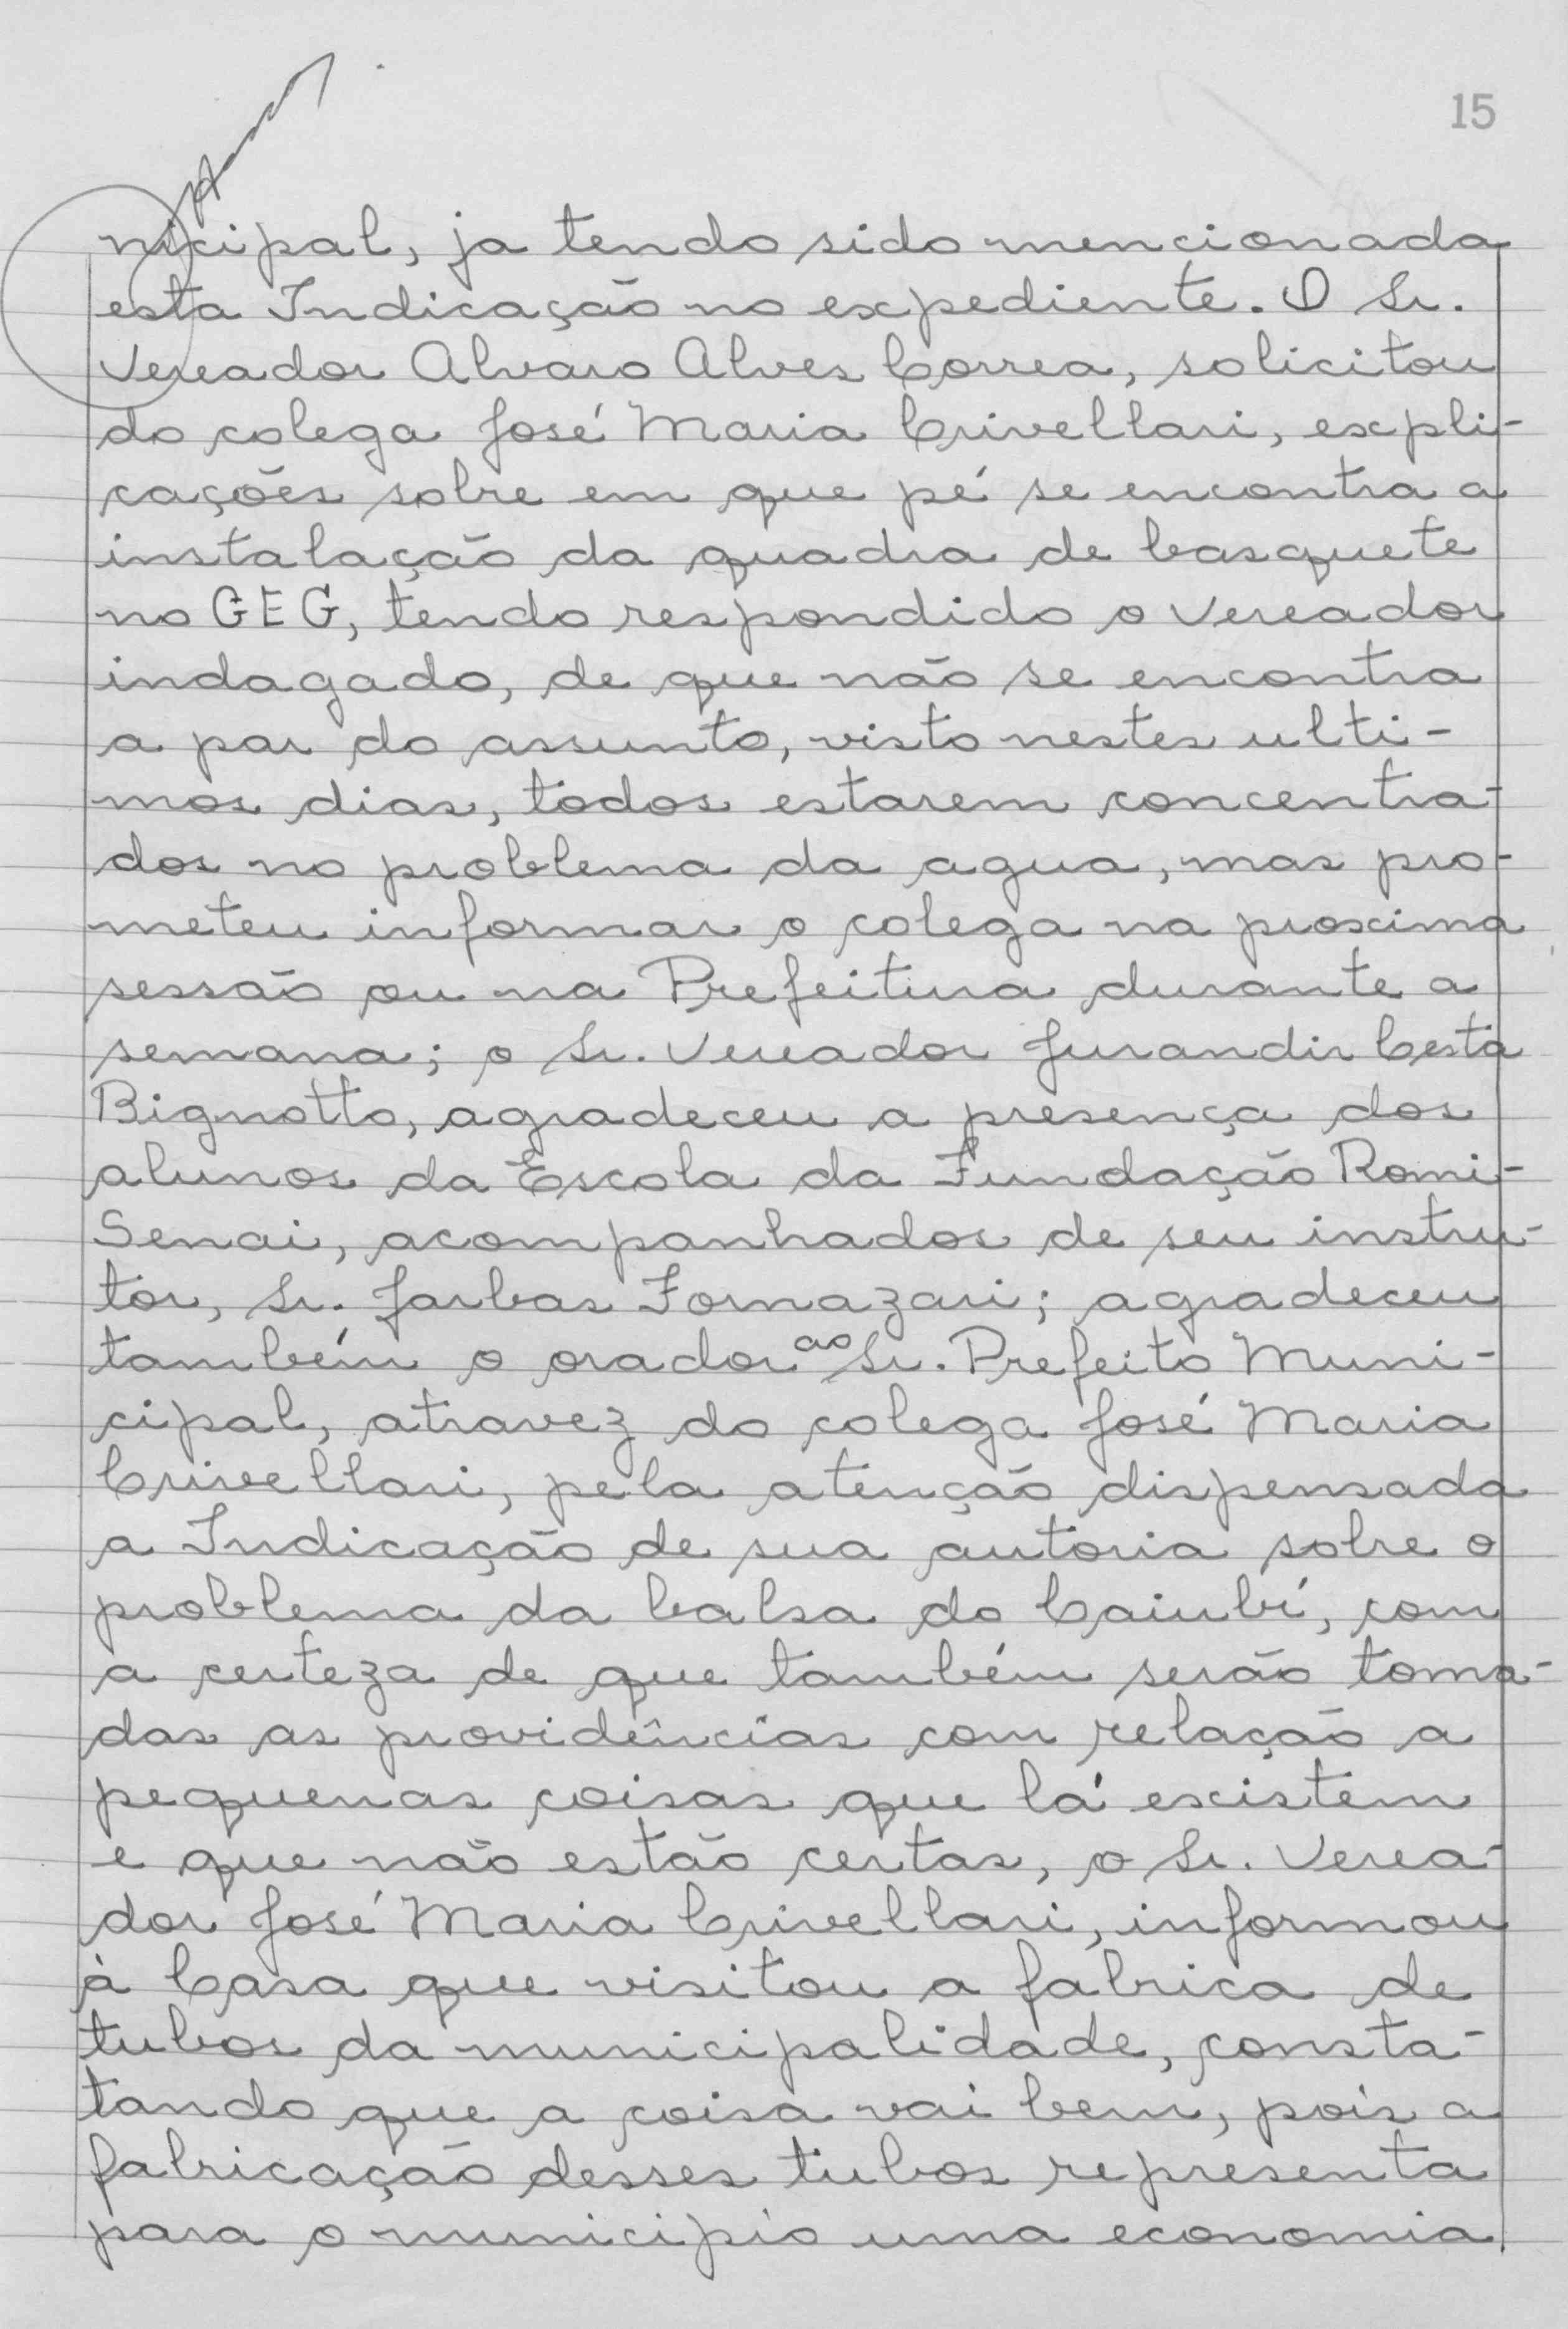 15
nicipal, ja tendo sido mencionada
esta Indicação no expediente. O Sr.
Vereador Alvaro Alves Correa, solicitou
do colega José Maria Crivellari, expli-
cações sobre em que pé se encontra a
instalação da quadra de basquete
no GEG, tendo respondido o Vereador
indagado, de que não se encontra
a par do assunto, visto nestes ulti-
mos dias, todos estarem concentra-
dos no problema da agua, mas pro-
meteu informar o colega na proxima
sessão ou na Prefeitura durante a
semana; o Sr. Vereador Jurandir Certa
Bignotto, agradeceu a presença dos
alunos da Escola da Fundação Romi-
Senai, acompanhados de seu instru-
tor, Sr. Jarbas Fornazari; agradeceu
também o orador ao Sr. Prefeito Muni-
cipal, atravez do colega José Maria
Crivellari, pela atenção dispensada
a Indicação de sua autoria sobre o
problema da balsa do Caiubí, com
a certeza de que também serão toma-
das as providências com relação a
pequenas coisas que lá existem
e que não estão certas, o Sr. Verea-
dor José Maria Crivellari, informou
à Casa que visitou a fabrica de
tubos da municipalidade, consta-
tando que a coisa vai bem, pois a
fabricação desses tubos representa
para o municipio uma economia